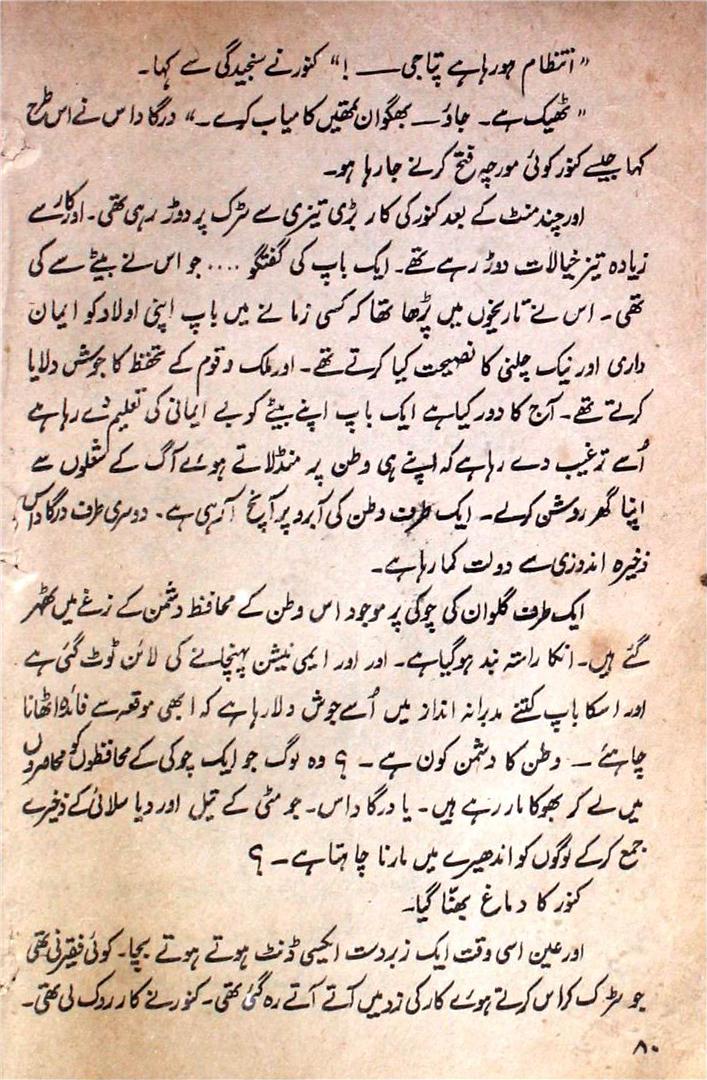 "انتظام ہو رہا ہے پتاجی ـــ !" کنور نے سنجیدگی سے کہا۔
"ٹھیک ہے۔ جاؤ ــ بھگوان تمھیں کامیاب کرے۔" درگا داس نے اس طرح
کہا جیسے کنور کوئی مورچہ فتح کرنے جا رہا ہو۔
اور چند منٹ کے بعد کنور کی کار بڑی تیزی سے سڑک پر دوڑ رہی تھی۔ اور کار سے
زیادہ تیز خیالات دوڑ رہے تھے۔ ایک باپ کی گفتگو .... جو اس نے بیٹے سے کی
تھی۔ اس نے تاریخوں میں پڑھا تھا کہ کسی زمانے میں باپ اپنی اولاد کو ایمان
داری اور نیک چلنی کا نصیحت کیا کرتے تھے۔ اور ملک و قوم کے تحفظ کا جوش دلایا
کرتے تھے۔ آج کا دور کیا ہے ایک باپ اپنے بیٹے کو بے ایمانی کی تعلیم دے رہا ہے
اُسے ترغیب دے رہا ہے کہ اپنے ہی وطن پر منڈلاتے ہوئے آگ کے شعلوں سے
اپنا گھر روشن کرلے۔ ایک طرف وطن کی آبرو پر آنچ آ رہی ہے۔ دوسری طرف درگا داس
ذخیرہ اندوزی سے دولت کما رہا ہے۔
ایک طرف گلوان کی چوکی پر موجود اس وطن کے محافظ دشمن کے نرغے میں گھر
گئے ہیں۔ انکا راستہ بند ہوگیا ہے۔ اور اور ایمی نیشن پہنچانے کی لائن ٹوٹ گئی ہے
اور اسکا باپ کتنے مدبرانہ انداز میں اُسے جوش دلا رہا ہے کہ ابھی موقعہ سے فائدہ اٹھانا
چاہئے ــ وطن کا دشمن کون ہے ــ ؟ وہ لوگ جو ایک چوکی کے محافظوں کو محاصروں
میں لے کر بھوکا مار رہے ہیں۔ یا درگا داس۔ جو مٹی کے تیل اور دیا سلائی کے ذخیرے
جمع کرکے لوگوں کو اندھیرے میں مارنا چاہتا ہے ــ ؟
کنور کا دماغ بھنّا گیا۔
اور عین اسی وقت ایک زبردست ایکسی ڈنٹ ہوتے ہوتے بچا۔ کوئی فقیرنی تھی
جو سڑک کراس کرتے ہوئے کار کی زد میں آتے آتے رہ گئی تھی۔ کنور نے کار روک لی تھی۔
۸۰